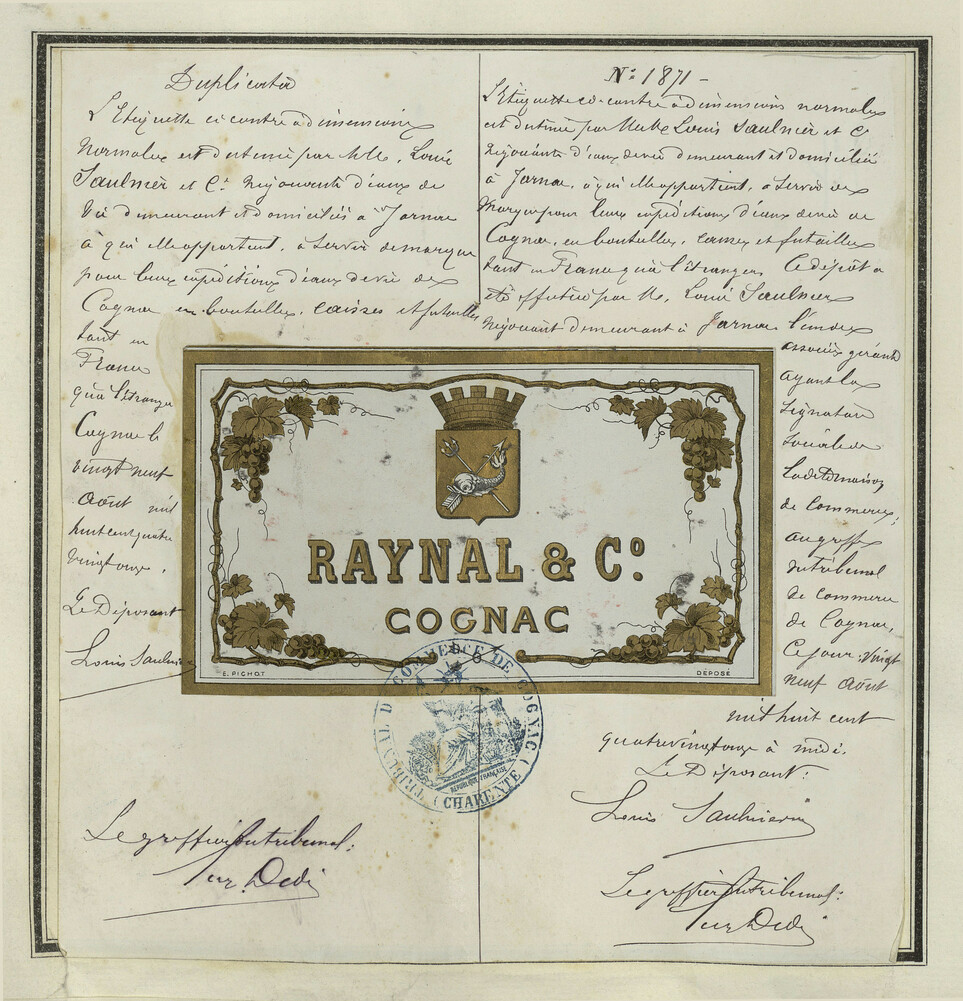 Duplicata
L'Etiquette ci contre à dimensions
normales est destinée par MM. Louis
Saulnier et Cie Négociants d'eaux de
vie demeurant et domiciliés à Jarnac
à qui elle appartient, à servir de marque
pour leurs expéditions d'eaux de vie de
Cognac en bouteilles, caisses et futailles
tant en
France
qu'à l'étranger
Cognac le
vingt neuf
Août mil
huit cent quatre
vingt onze.
Le Déposant
Louis Saulnier
Le greffier du tribunal:
No 1871 -
L'Etiquette ci-contre à dimensions normales
est destinée par MM. Louis Saulnier et Cie
Négociants d'eaux de vie demeurant et domiciliés
à Jarnac, à qui elle appartient, à servir de
marque pour leurs expéditions d'eaux de vie de
Cognac, en bouteilles, caisses et futailles
tant en France qu'à l'étranger. Le dépôt a
été effectué par M. Louis Saulnier
négociant demeurant à Jarnac l'un des
associés gérants
ayant la
signature
sociale de
la dite maison
de Commerce,
au greffe
du tribunal
de commerce
de Cognac,
Ce jour, vingt
neuf Août
mil huit cent
quatre vingt onze à midi.
Le Déposant:
Louis Saulnier
Le greffier du tribunal:
RAYNAL & Co.
COGNAC
E. PICHOT
DÉPOSÉ
TRIBUNAL DE COMMERCE DE COGNAC
(CHARENTE)
RÉPUBLIQUE FRANÇAISE